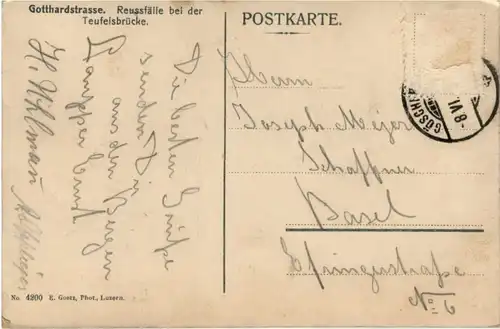 Gotthardstrasse. Reussfälle bei der
Teufelsbrücke.
POSTKARTE.
GÖSCHE
-8.VI.
Die besten Grüße
sendet Dir
aus den Bergen
Ernst
H.
Herrn
Joseph Meyer
Schaffner
Basel
Efringerstraße
No 6
No. 4200 E. Goetz, Phot., Luzern.